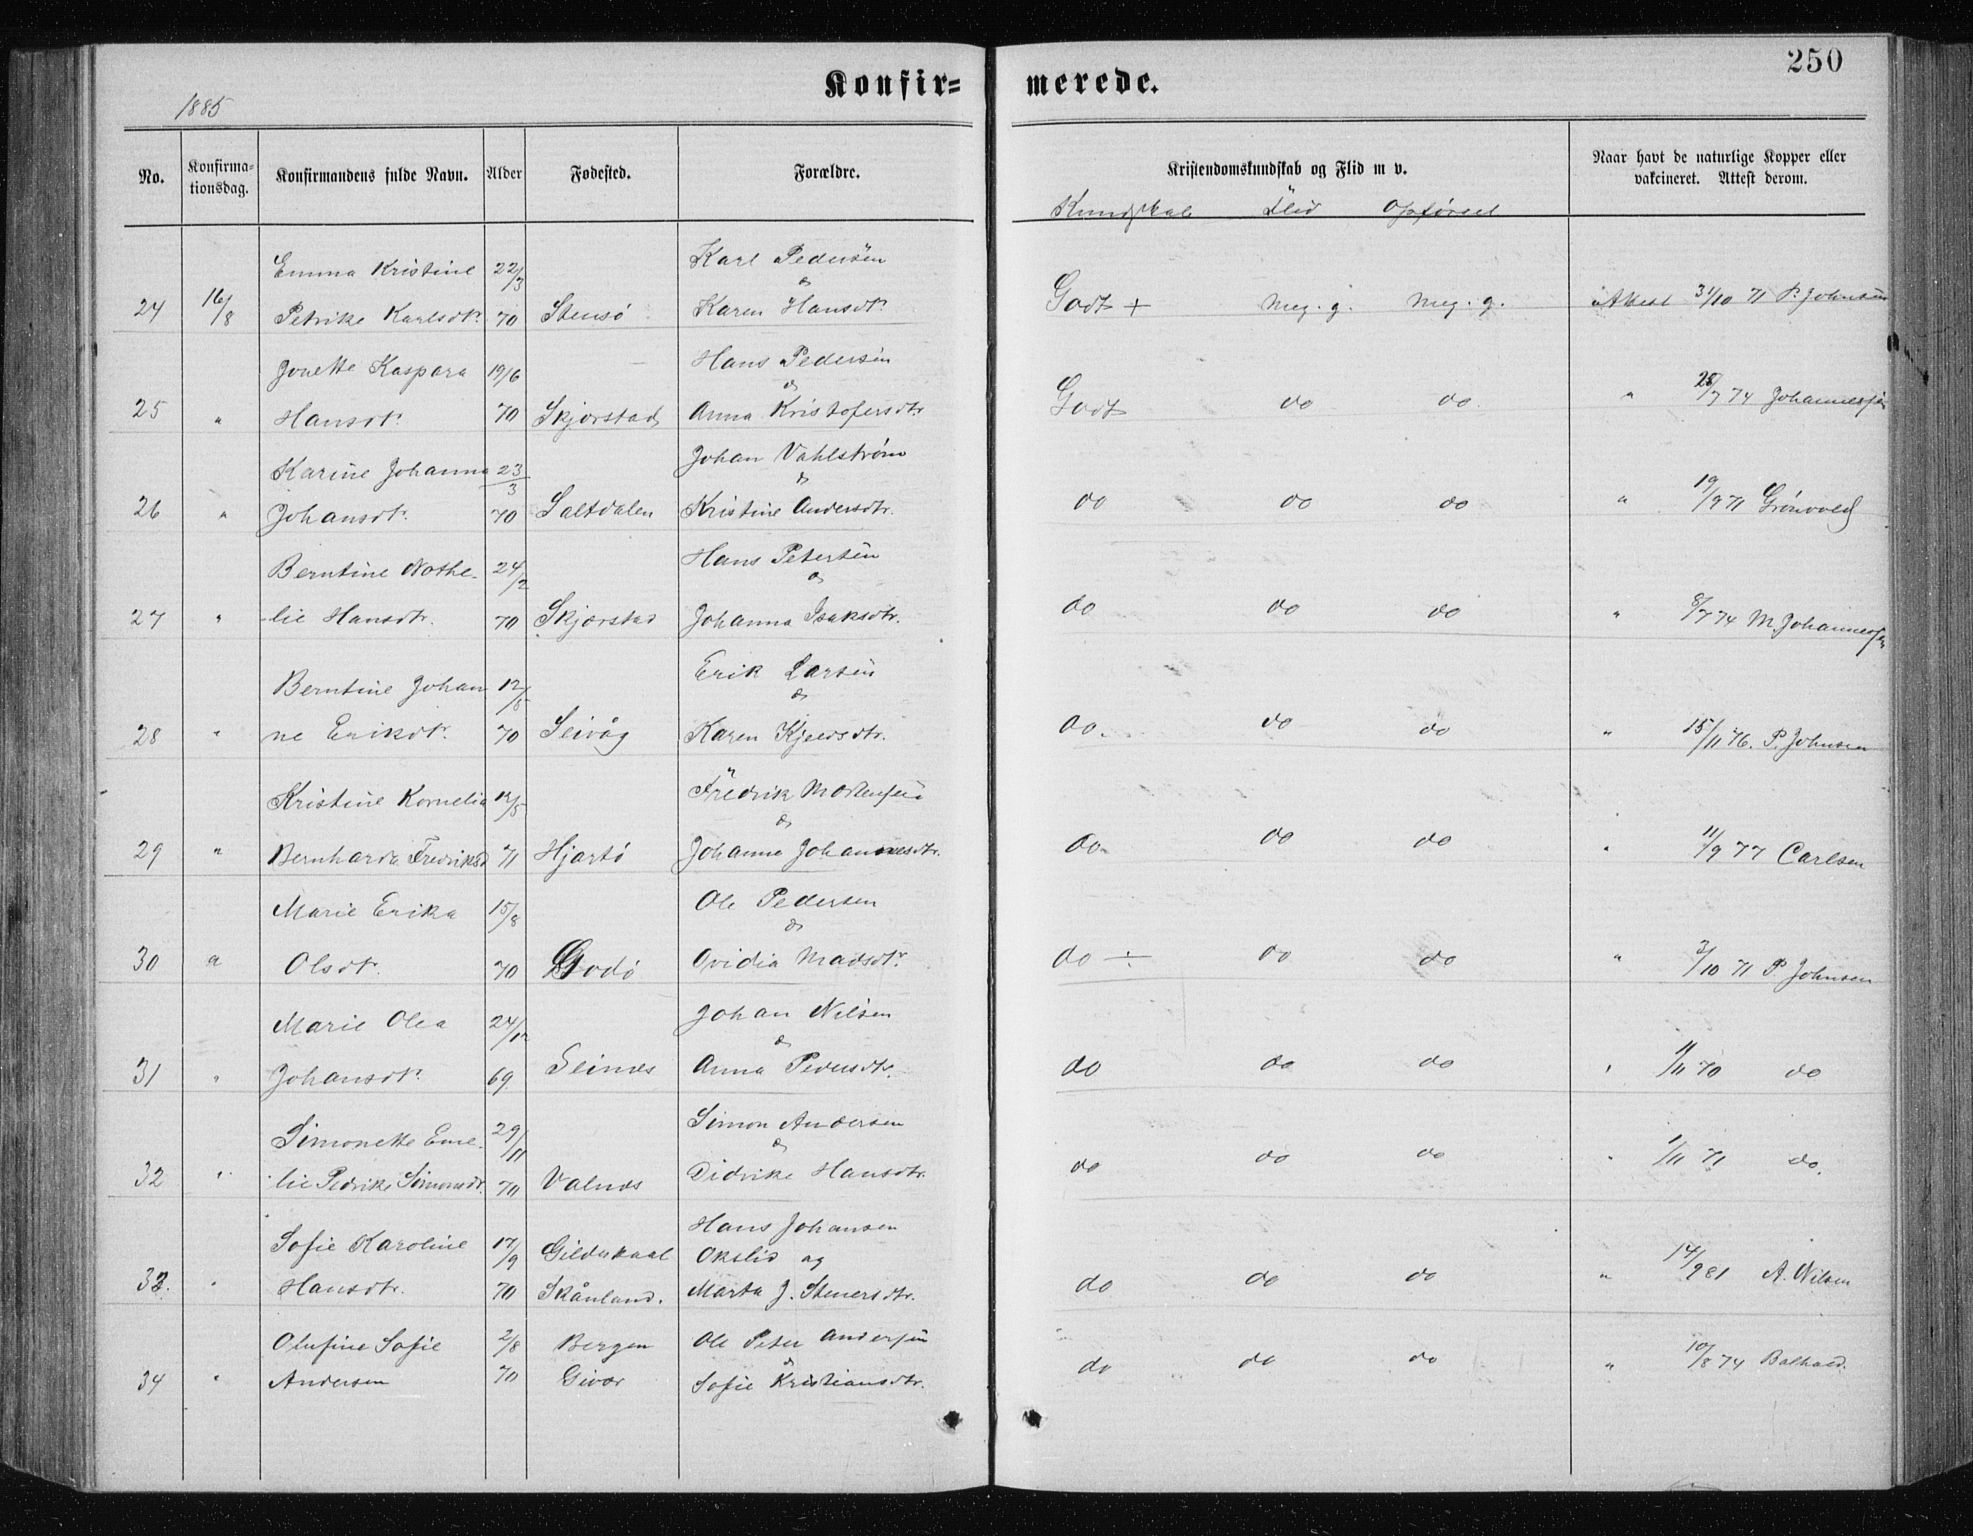 250
Konfir= merede.
1885
No. Konfirma-tionsdag. Konfirmandens fulde Navn. Alder Fødested. Forældre. Kristendomskundskab og Flid m v. Naar havt de naturlige Kopper eller vakcineret. Attest derom.
Kundskab Flid Opførsel
Emma Kristine 22/3 Karl Pedersen
&
24 16/8 Petrike Karlsdtr. 70 Stensø Karen Hansdtr. Godt + Meg. g. Meg. g. Attest 31/10 71 P. Johnsen
Jonette Kaspara 19/6 Hans Pedersen
&
25 " Hansdtr. 70 Skjørstad Anna Kristofersdtr. Godt do do " 28/7 74 Johannesen
Karine Johanna 23/3 Johan Vahlstrøm
&
26 " Johansdtr. 70 Saltdalen Kristine Andersdtr. do do do " 19/9 71 Grønvold
Berntine Nathe- 24/2 Hans Petersen
&
27 " -lie Hansdtr. 70 Skjørstad Johanna Isaksdtr. do do do " 8/7 74 M. Johannesen
Berntine Johan 12/5 Erik Larsen
&
28 " ne Eriksdtr. 70 Seivåg Karen Kjeldsdtr. do. do do " 15/11 76. P. Johnsen
Kristine Kornelia 12/5 Fredrik Mortensen
&
29 " Bernharda Fredriksd 71 Hjartø Johanna Johannesdtr. do do do " 11/9 77 Carlsen
Marie Erika 15/8 Ole Pedersen
&
30 " Olsdtr. 70 Godø Ovidia Madsdtr. do ÷ do do " 3/10 71 P. Johnsen
Marie Olea 24/12 Johan Nilsen
&
31 " Johansdtr. 69 Seines Anna Pedersdtr. do do do " 11/11 70 do
Simonette Eme- 29/11 Simon Andersen
&
32 " -lie Pedrike Simonsdtr. 70 Valnes Didrike Hansdtr. do do do " 1/11 71 do.
Sofie Karoline 17/9 Gildeskaal Hans Johansen
Okslid og
33. " Hansdtr. 70 Skånland. Marta J. Stenersdtr. do do do " 14/9 81 A. Nilsen
Olufine Sofie 2/8 Bergen Ole Peter Andersen
&
34 " Andersen 70 Givær Sofie Kristiansdtr. do do do " 10/8 74